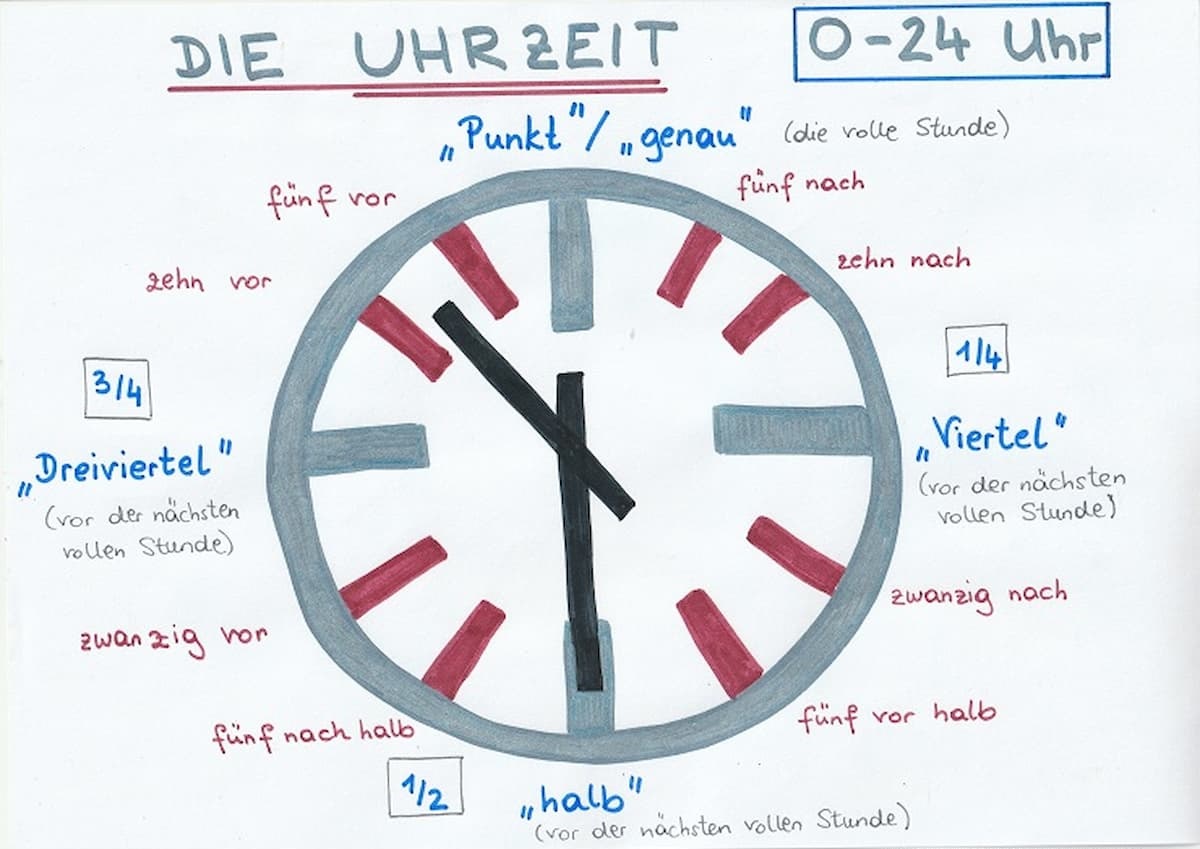 DIE UHRZEIT
0-24 Uhr
„Punkt"/„genau" (die volle Stunde)
fünf vor
fünf nach
zehn vor
zehn nach
3/4
1/4
„Dreiviertel"
(vor der nächsten
vollen Stunde)
„Viertel"
(vor der nächsten
vollen Stunde)
zwanzig vor
zwanzig nach
fünf nach halb
fünf vor halb
1/2
„halb"
(vor der nächsten vollen Stunde)